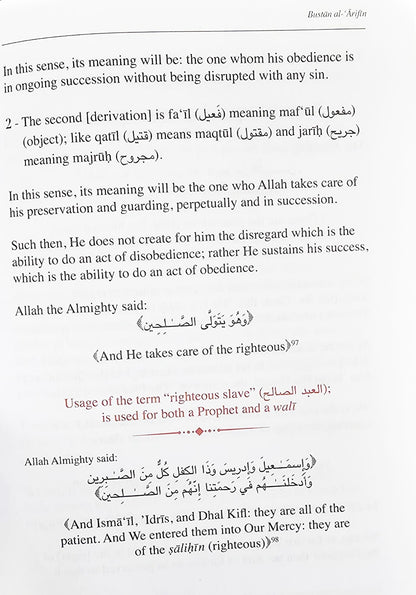 Bustān al-ʻĀrifīn
In this sense, its meaning will be: the one whom his obedience is
in ongoing succession without being disrupted with any sin.
2 - The second [derivation] is faʻīl (فَعيل) meaning mafʻūl (مفعول)
(object); like qatīl (قتيل) means maqtūl (مقتول) and jarīḥ (جريح)
meaning majrūḥ (مجروح).
In this sense, its meaning will be the one who Allah takes care of
his preservation and guarding, perpetually and in succession.
Such then, He does not create for him the disregard which is the
ability to do an act of disobedience; rather He sustains his success,
which is the ability to do an act of obedience.
Allah the Almighty said:
﴿وَهُوَ يَتَوَلَّى الصَّـٰلِحِين﴾
﴾And He takes care of the righteous﴿97
Usage of the term “righteous slave” (العبد الصالح);
is used for both a Prophet and a walī
Allah Almighty said:
﴿وَإِسْمَـٰعِيلَ وَإِدْرِيسَ وَذَا الكِفْلِ كُلٌّ مِنَ الصَّـٰبِرِين
وَأَدخَلنَـٰـهُم فِي رَحمَتِنا إِنَّهُم مِنَ الصَّـٰلِحِين﴾
﴾And Ismāʻīl, ʼIdrīs, and Dhal Kifl: they are all of the
patient. And We entered them into Our Mercy: they are
of the ṣāliḥīn (righteous)﴿98